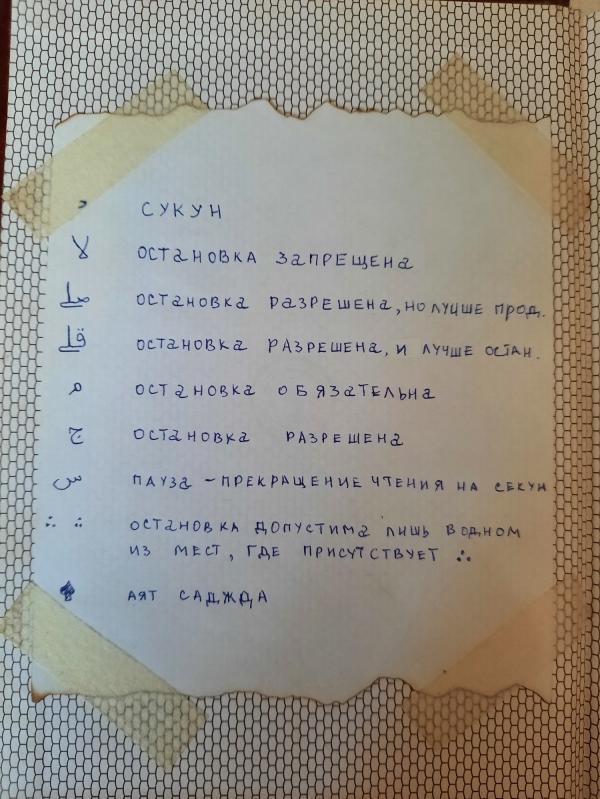 ۡ СУКУН
لا ОСТАНОВКА ЗАПРЕЩЕНА
صلے ОСТАНОВКА РАЗРЕШЕНА, НО ЛУЧШЕ ПРОД.
قلے ОСТАНОВКА РАЗРЕШЕНА, И ЛУЧШЕ ОСТАН.
م ОСТАНОВКА ОБЯЗАТЕЛЬНА
ج ОСТАНОВКА РАЗРЕШЕНА
س ПАУЗА – ПРЕКРАЩЕНИЕ ЧТЕНИЯ НА СЕКУН
∴ ∴ ОСТАНОВКА ДОПУСТИМА ЛИШЬ В ОДНОМ
ИЗ МЕСТ, ГДЕ ПРИСУТСТВУЕТ ∴
АЯТ САДЖДА